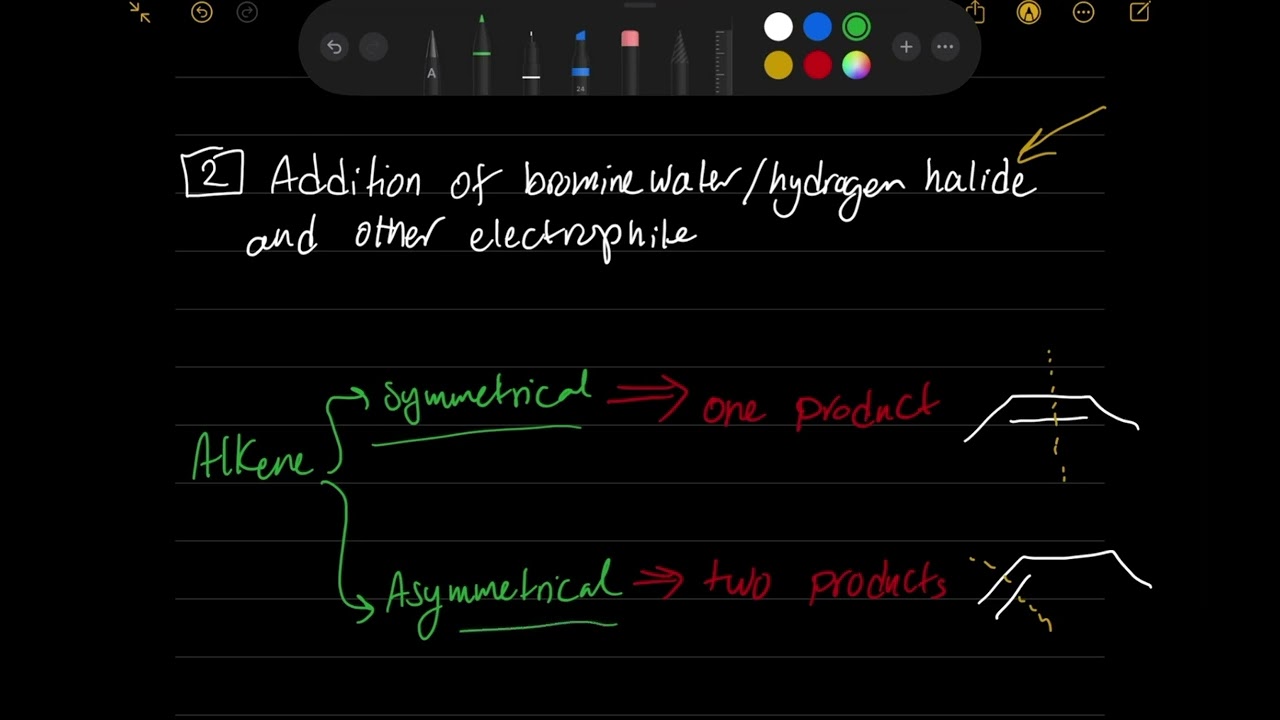 2 Addition of bromine water/hydrogen halide
and other electrophile
Symmetrical ⇒ one product
Alkene
Asymmetrical ⇒ two products
A
24